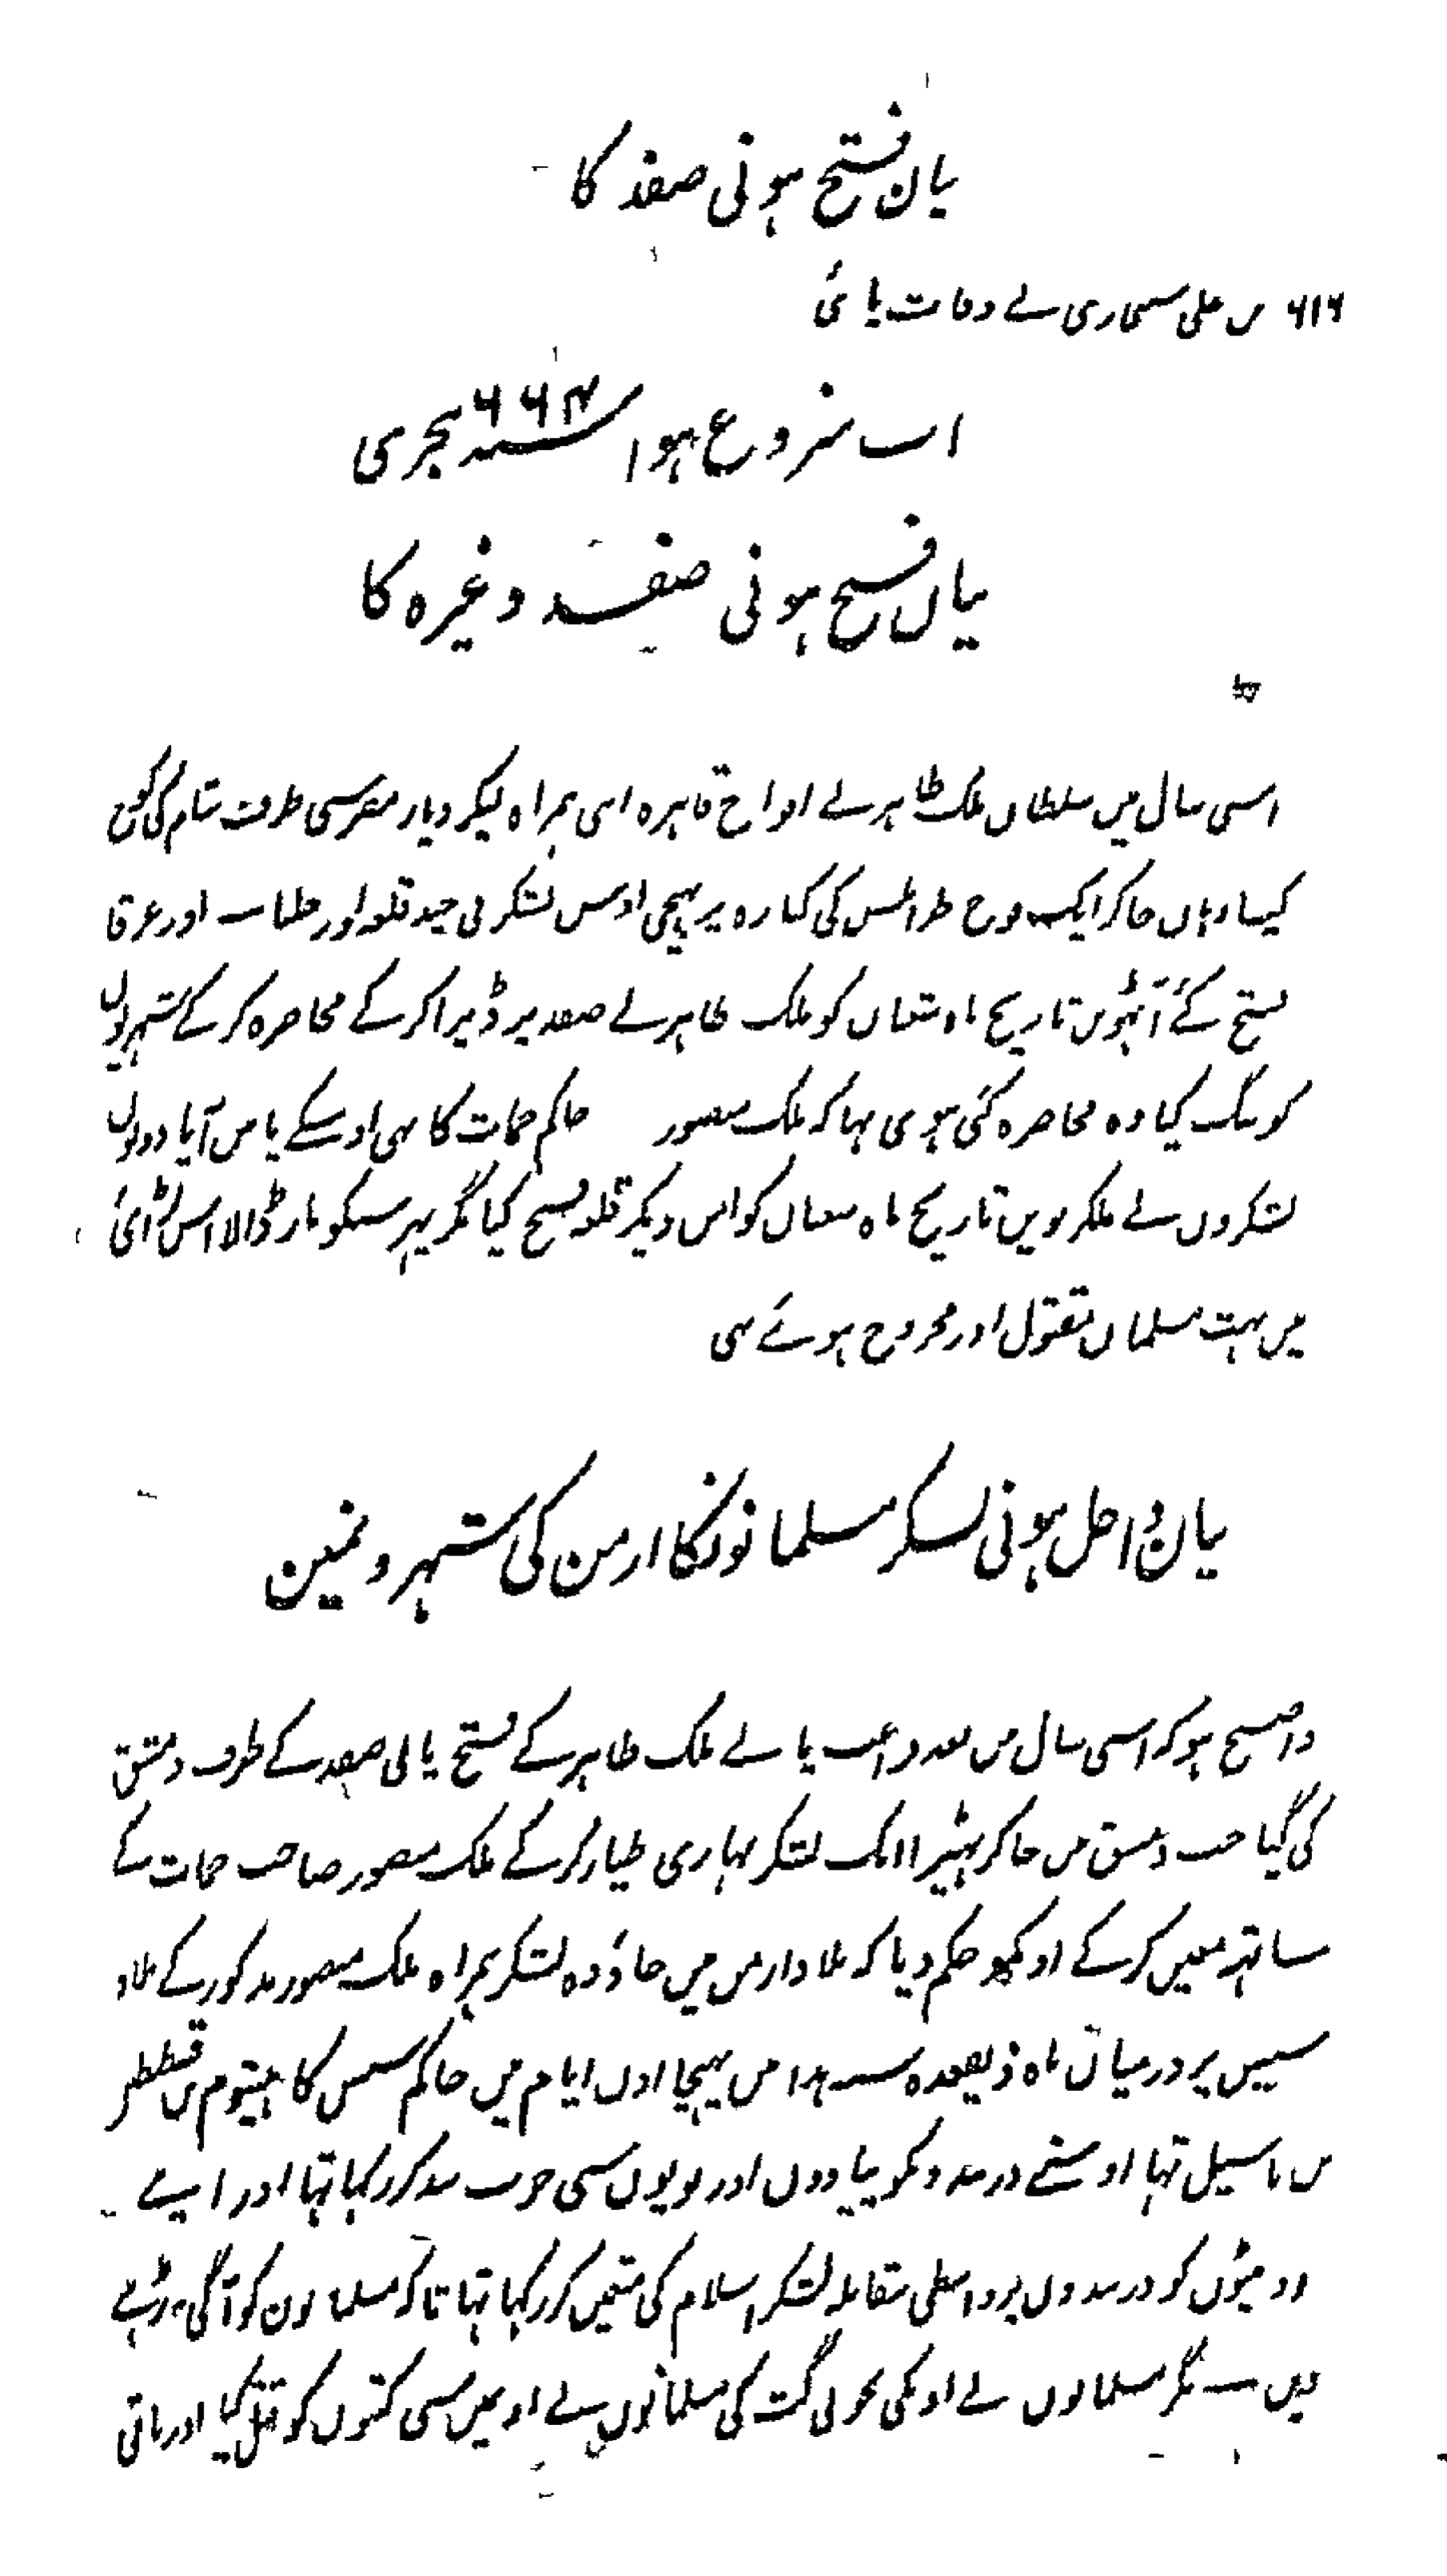 بیان فتح ہونی صفد کا
۶۱۶ میں علی سنجاری نے وفات پائی
اب شروع ہوا ۶۶۴ سنہ ہجری
بیان فتح ہونی صفد وغیرہ کا
اسی سال میں سلطان ملک ظاہر نے افواج قاہرہ اپنی ہمراہ لیکر دیار مصر سی طرف شام کی کوچ
کیا وہاں جا کر ایک فوج طرابلس کی کنارہ پر پہیجی اوس لشکر نی چند قلعہ اور حلبات اور عرقا
فتح کئے آٹہویں تاریخ ماہ شعبان کو ملک ظاہر نے صفد پر ڈیرا کر کے محاصرہ کر کے شہریوں
کو تنگ کیا وہ محاصرہ کئی ہوی تہا کہ ملک منصور حاکم حمات کا بہی اوسکے پاس آیا دونوں
لشکروں نے ملکر نویں تاریخ ماہ شعبان کو امن دیکر قلعہ فتح کیا مگر پہر سبکو مار ڈالا اس لڑائی
میں بہت مسلمان مقتول اور مجروح ہوئے تہی
بیان داخل ہونی لشکر مسلمانونکا ارمن کی شہرونمین
واضح ہو کہ اسی سال میں بعد فراغت پانے ملک ظاہر کے فتح یابی صفد کے طرف دمشق
کی گیا جب دمشق میں جا کر ٹہیرا ایک لشکر بہاری طیار کر کے ملک منصور صاحب حمات کے
ساتہہ معین کر کے اونکو حکم دیا کہ بلاد ارمن میں جاؤ وہ لشکر ہمراہ ملک منصور مذکور کے بلاد
سیس پر درمیان ماہ ذیقعدہ سنہ ہذا میں پہیچا اون ایام میں حاکم سیس کا ہیتوم بن قسطنطر
بن باسیل تہا اوسنے دربندونکو پیادوں اور توپوں سی خوب بند کر رکہا تہا اور اپنے
دو بیٹوں کو دربندوں پر واسطی مقابلہ لشکر اسلام کی متعین کر رکہا تہا تاکہ مسلمانون کو آگی نہ بڑہنے
دیں — مگر مسلمانوں نے اونکی بخوبی گت کی مسلمانوں نے اونمیں سی کتنوں کو قتل کیا اور باقی